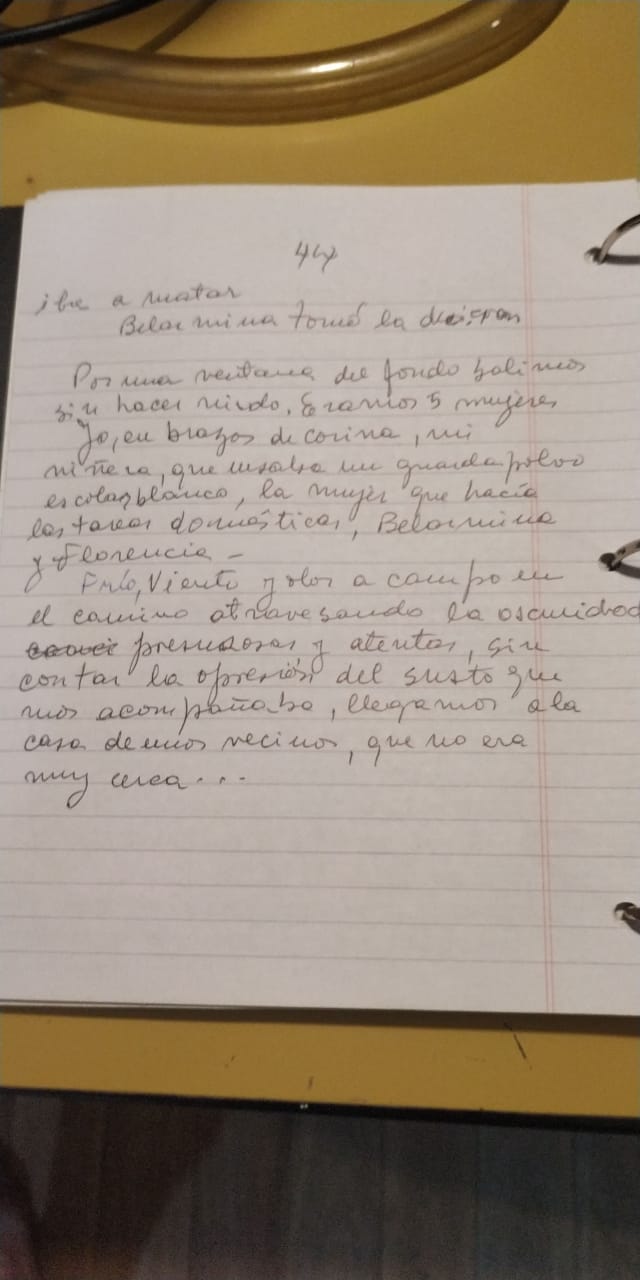 44
iba a matar
Belarmina tomó la decisión
Por una ventana del fondo salimos
sin hacer ruido, Eramos 5 mujeres
Yo, en brazos de corina, mi
niñera, que usaba un guardapolvo
escolar blanco, la mujer que hacía
las tareas domésticas, Belarmina
y Florencia -
Frío, Viento y olor a campo en
el camino atravesando la oscuridad
presurosas y atentas, sin
contar la opresión del susto que
nos acompañaba, llegamos a la
casa de unos vecinos, que no era
muy cerca...